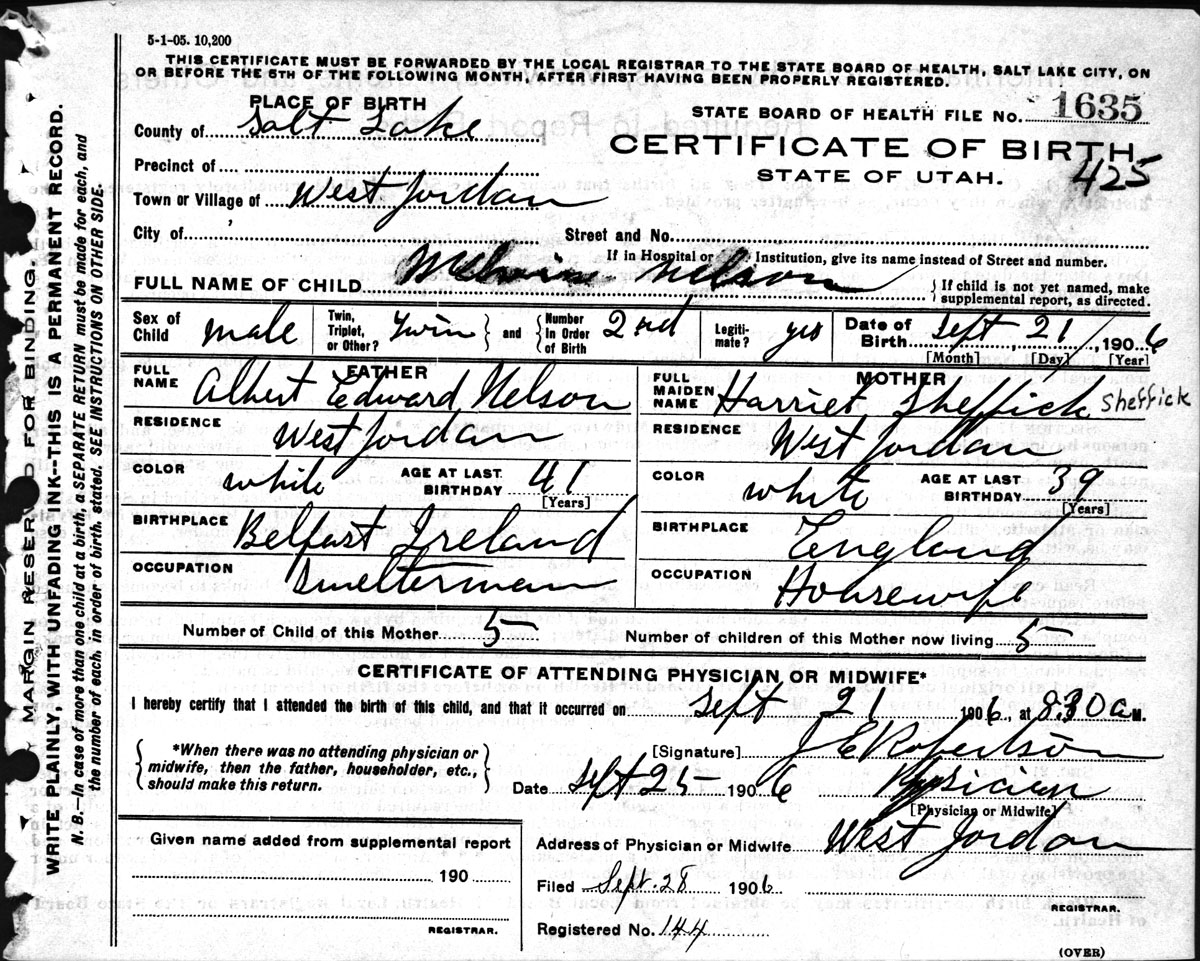 5-1-05. 10,200
THIS CERTIFICATE MUST BE FORWARDED BY THE LOCAL REGISTRAR TO THE STATE BOARD OF HEALTH, SALT LAKE CITY, ON
OR BEFORE THE 5TH OF THE FOLLOWING MONTH, AFTER FIRST HAVING BEEN PROPERLY REGISTERED.
PLACE OF BIRTH
STATE BOARD OF HEALTH FILE No. 1635
County of Salt Lake
CERTIFICATE OF BIRTH
Precinct of
STATE OF UTAH. 425
Town or Village of West Jordan
City of Street and No.
If in Hospital or Institution, give its name instead of Street and number.
FULL NAME OF CHILD Melvin Nelson { If child is not yet named, make supplemental report, as directed.
Sex of Child male Twin, Triplet, or Other? Twin } and { Number In Order of Birth 2nd Legiti-mate? yes Date of Birth Sept 21, 1906
[Month] [Day] [Year]
FATHER MOTHER
FULL NAME Albert Edward Nelson FULL MAIDEN NAME Harriet Sheffick Sheffick
RESIDENCE West Jordan RESIDENCE West Jordan
COLOR white AGE AT LAST BIRTHDAY 41 [Years] COLOR white AGE AT LAST BIRTHDAY 39 [Years]
BIRTHPLACE Belfast Ireland BIRTHPLACE England
OCCUPATION Smelterman OCCUPATION Housewife
Number of Child of this Mother 5 Number of children of this Mother now living 5
CERTIFICATE OF ATTENDING PHYSICIAN OR MIDWIFE*
I hereby certify that I attended the birth of this child, and that it occurred on Sept 21 1906, at 8:30 a M.
{ *When there was no attending physician or midwife, then the father, householder, etc., should make this return. }
[Signature] J E Robertson
Date Sept 25 1906 Physician
[Physician or Midwife]
Given name added from supplemental report
Address of Physician or Midwife West Jordan
190
Filed Sept. 28 1906
REGISTRAR.
REGISTRAR.
Registered No. 144
(OVER)
MARGIN RESERVED FOR BINDING
WRITE PLAINLY, WITH UNFADING INK--THIS IS A PERMANENT RECORD.
N. B.—In case of more than one child at a birth, a SEPARATE RETURN must be made for each, and
the number of each, in order of birth, stated. SEE INSTRUCTIONS ON OTHER SIDE.